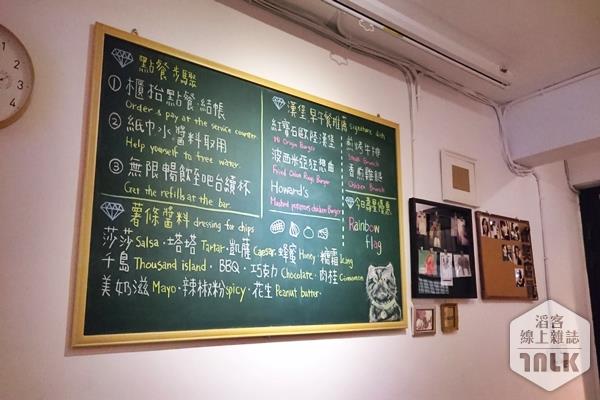 點餐步驟
① 櫃抬點餐·結帳
Order & pay at the service counter
② 紙巾水醬料取用
Help yourself to free water
③ 無限暢飲至吧台續杯
Get the refills at the bar
薯條醬料 dressing for chips
莎莎Salsa·塔塔Tartar·凱薩Caesar·蜂蜜Honey·糖霜Icing
千島Thousand island·BBQ·巧克力Chocolate·肉桂Cinnamon
美奶滋Mayo·辣椒粉spicy·花生Peanut butter·
漢堡 早午餐推薦 signature dish
紅寶石歐陸漢堡
波西米亞狂想曲
Fried Onion Rings Burger
Howard's
Mashed potatoes chicken Burger
炙烤牛排
Steak Brunch
香煎雞腿
Chicken Brunch
今日壽星優惠
Rainbow
flag
滔客
線上雜誌
TALK